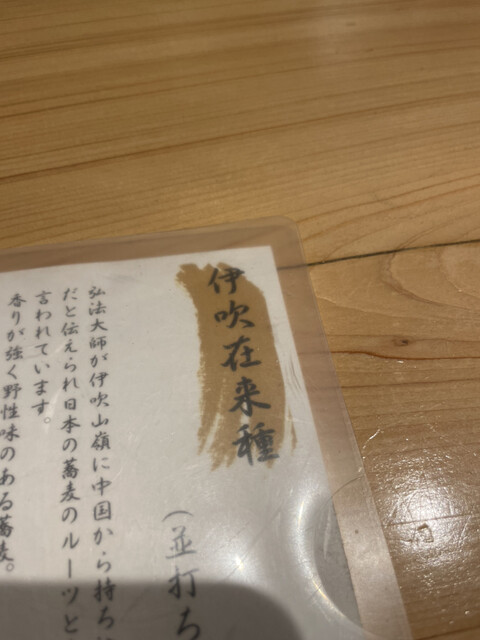 伊吹在来種
（並打ち
弘法大師が伊吹山嶺に中国から持ち
だと伝えられ日本の蕎麦のルーツと
言われています。
香りが強く野性味のある蕎麦。